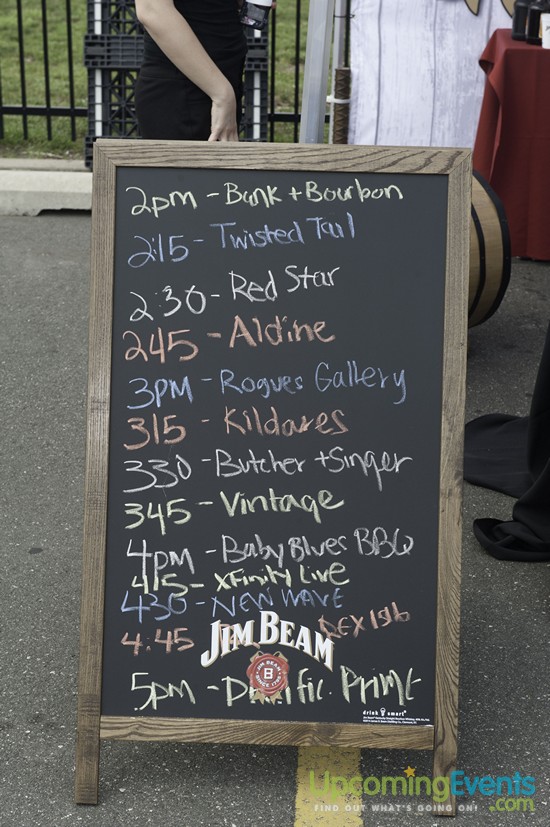 2pm - Bank + Bourbon
2:15 - Twisted Tail
2:30 - Red Star
245 - Aldine
3PM - Rogues Gallery
315 - Kildares
330 - Butcher + Singer
345 - Vintage
4pm - Baby Blues BBQ
415 - XFinity Live
430 - NEW WAVE
4:45
JIM BEAM
JIM BEAM
B
SINCE 1795
5pm - Prime
drink smart
UpcomingEvents
FIND OUT WHAT'S GOING ON!
.com